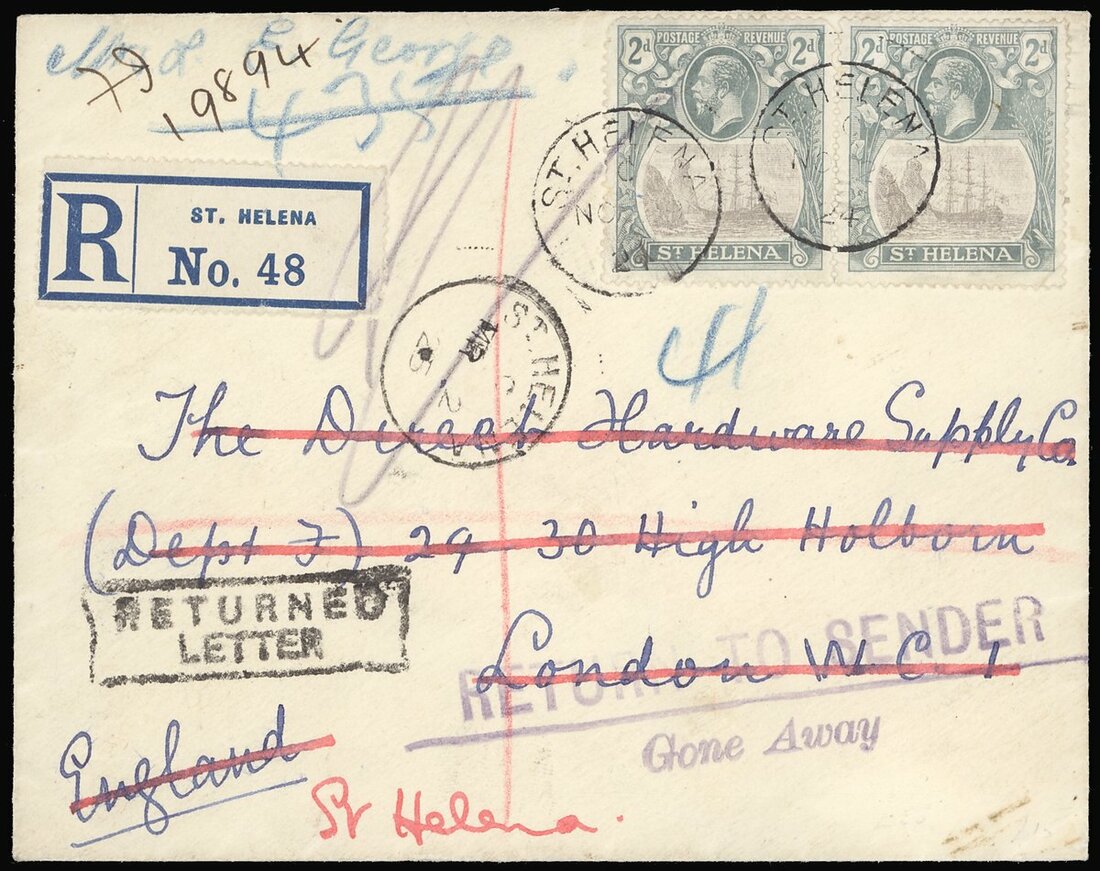 L. George
79
19894
R
ST. HELENA
No. 48
2d POSTAGE REVENUE 2d
ST HELENA
2d POSTAGE REVENUE 2d
ST HELENA
ST. HELENA
NO
ST. HELENA
NO
24
ST. HELENA
MR
25
The Direct Hardware Supply Co
(Dept F) 29 30 High Holborn
London W.C.1
England
RETURNED
LETTER
RETURN TO SENDER
Gone Away
St Helena.